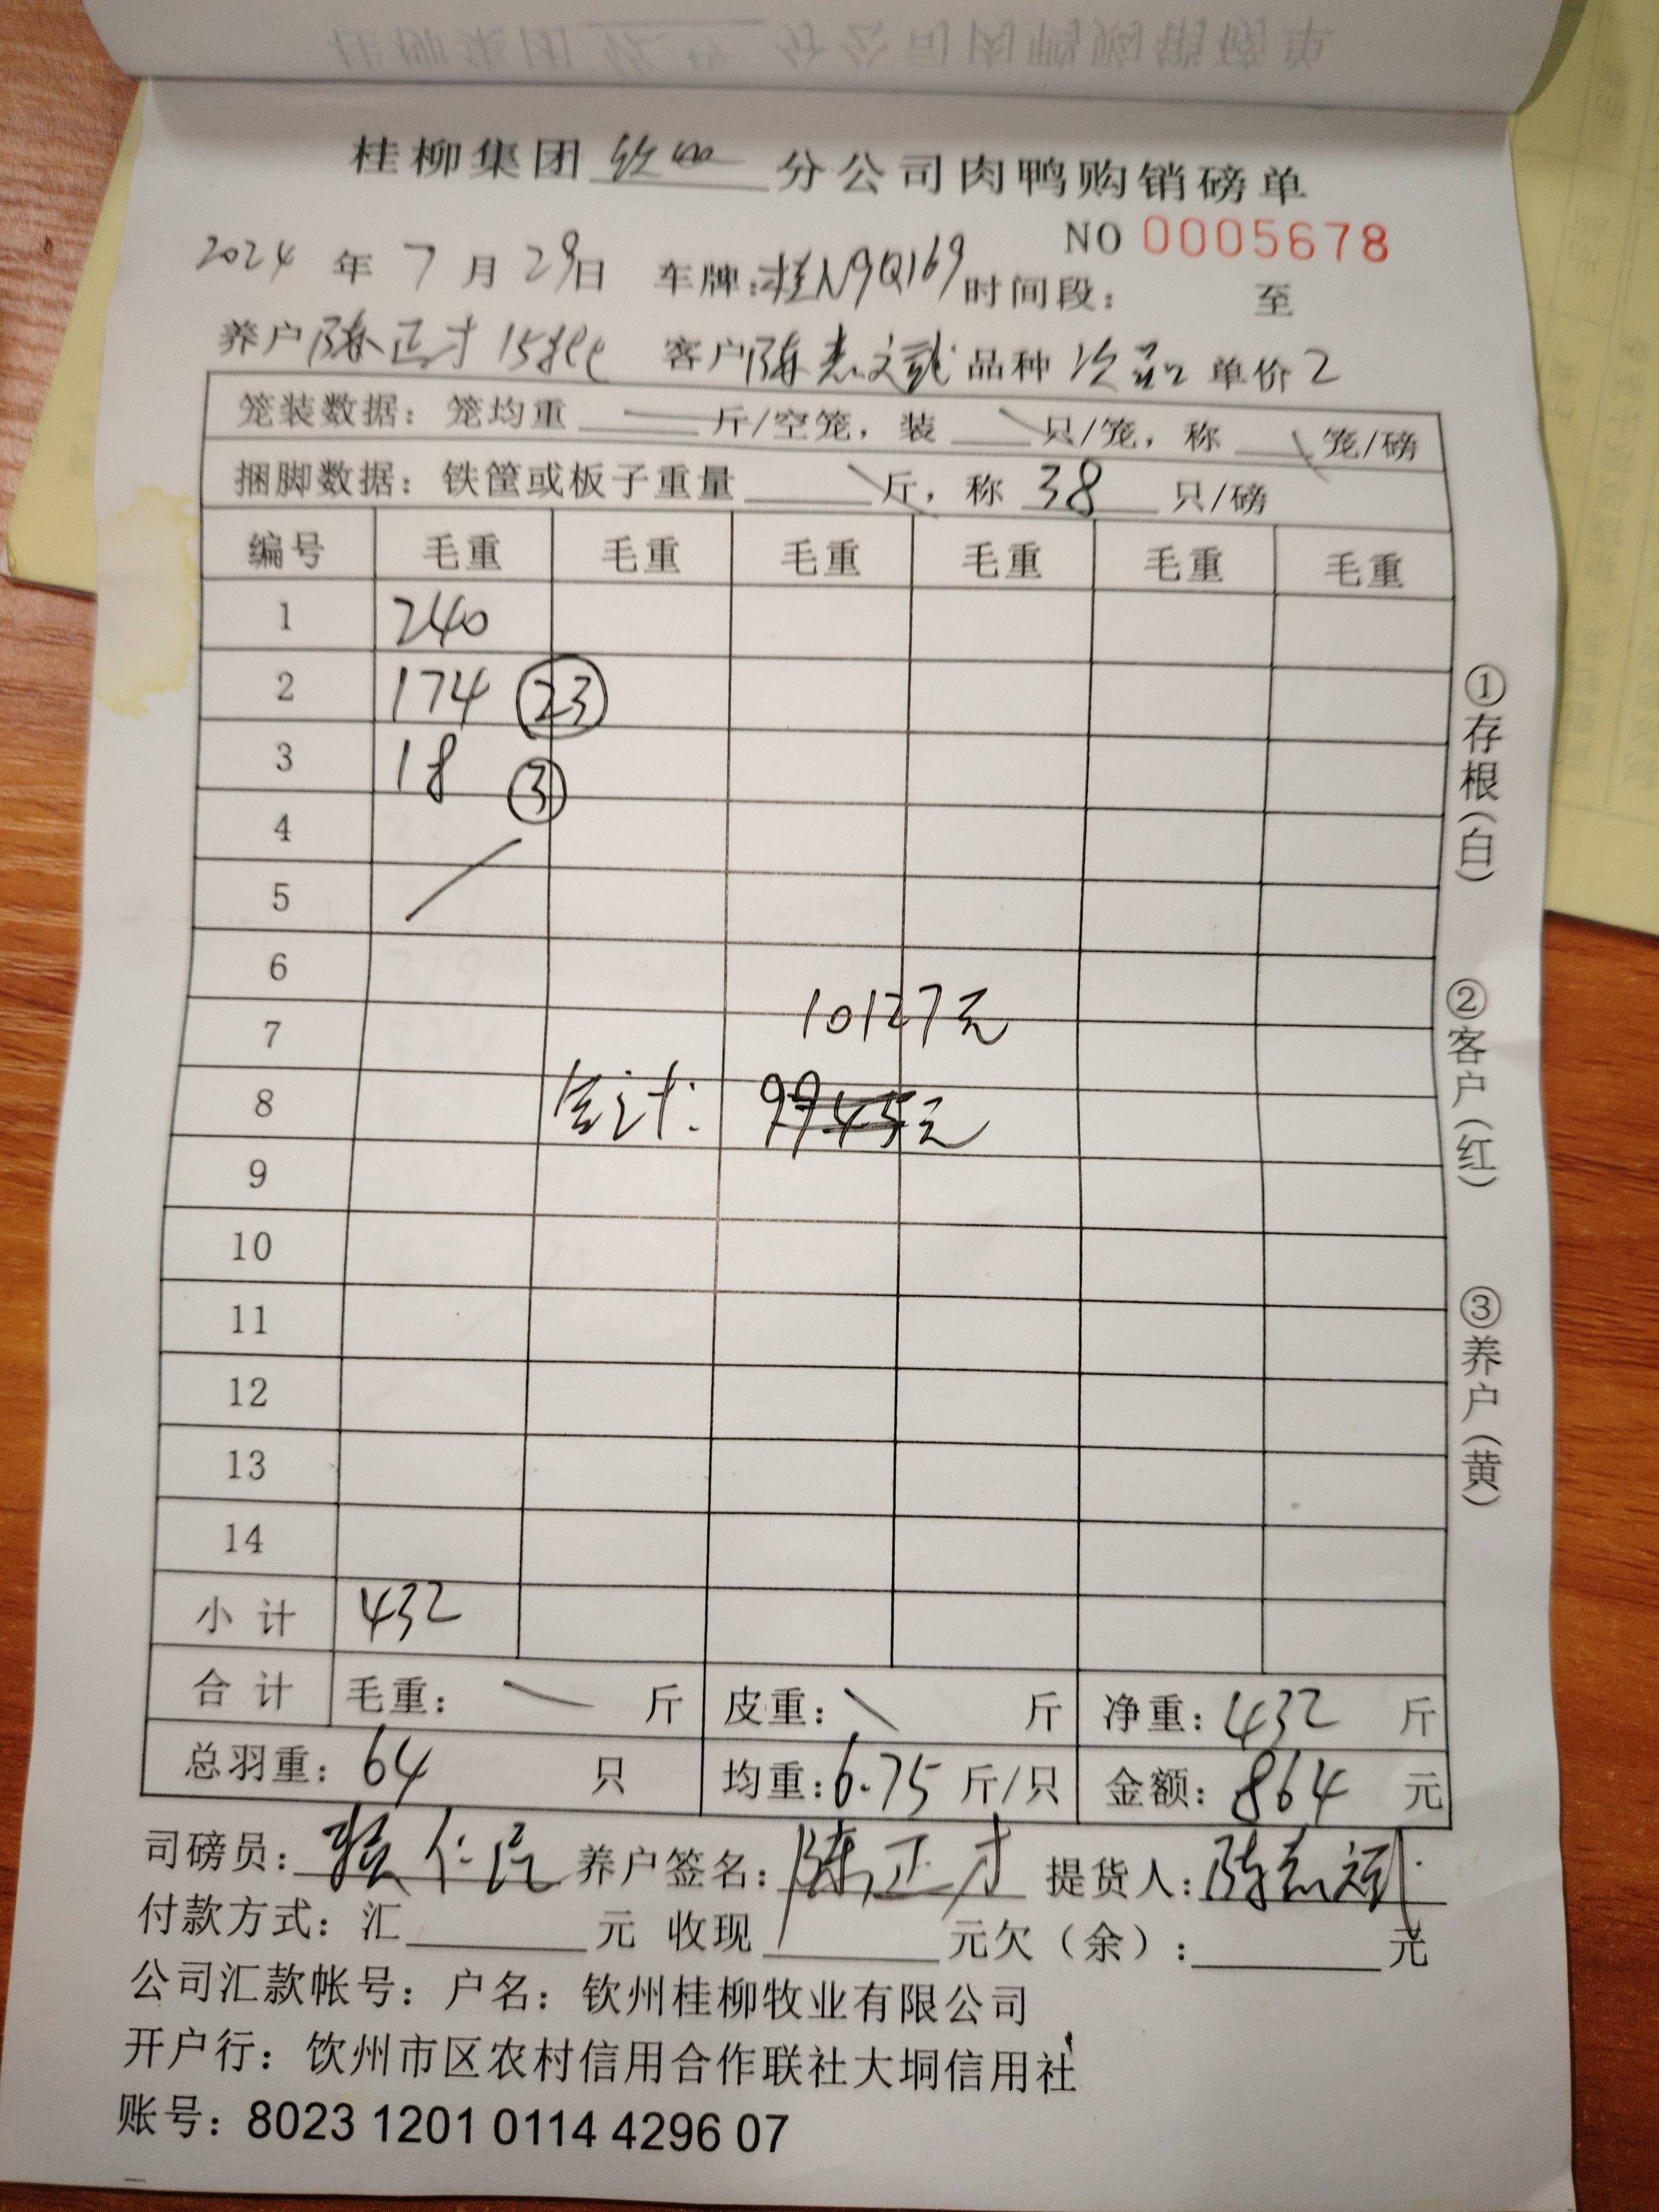 桂柳集团 钦州 分公司肉鸭购销磅单
NO 0005678
2024 年 7 月 29日 车牌:桂N9Q169 时间段: 至
养户 陈正才 15批 客户 陈志斌 品种 次品 单价 2
笼装数据: 笼均重 斤/空笼, 装 只/笼, 称 笼/磅
捆脚数据: 铁筐或板子重量 斤, 称 38 只/磅
编号 毛重 毛重 毛重 毛重 毛重 毛重
1 240
2 174 ㉓
3 18 ③
4
5
6
7 10127元
8 合计: 9945元
9
10
11
12
13
14
小计 432
合计 毛重: 斤 皮重: 斤 净重: 432 斤
总羽重: 64 只 均重: 6.75 斤/只 金额: 864 元
①存根(白)
②客户(红)
③养户(黄)
司磅员: 养户签名: 陈正才 提货人: 陈志斌
付款方式: 汇 元 收现 元欠(余): 元
公司汇款帐号: 户名: 钦州桂柳牧业有限公司
开户行: 钦州市区农村信用合作联社大垌信用社
账号: 8023 1201 0114 4296 07